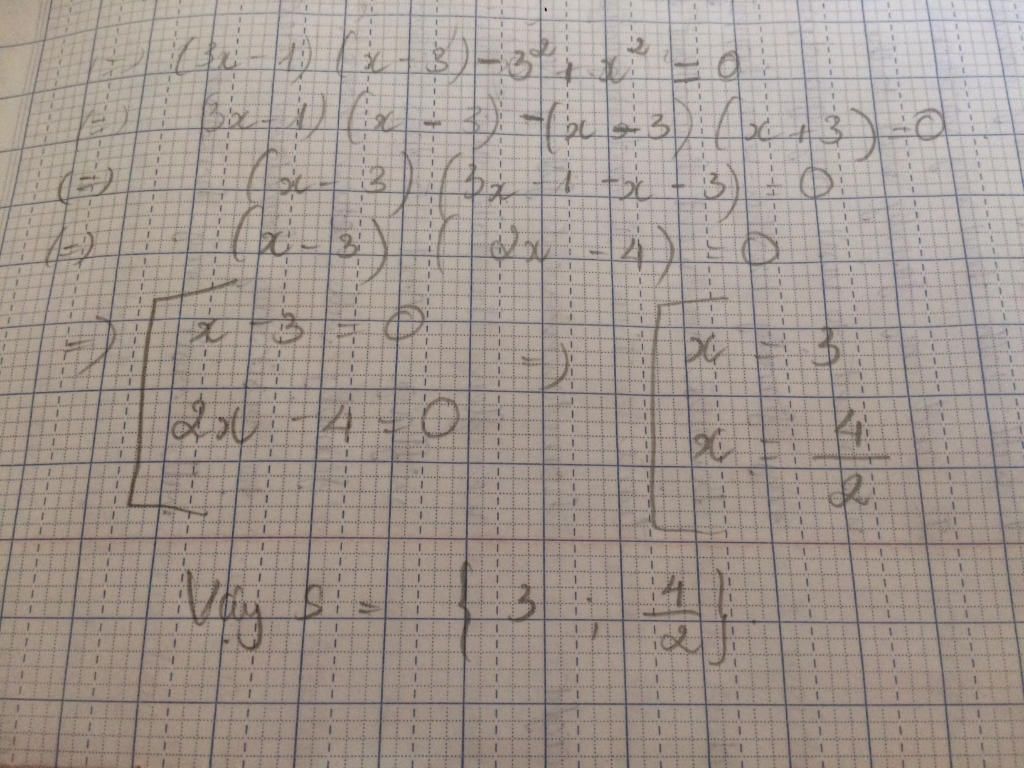 (=) (3x - 1) (x - 3) - 3² + x² = 0
(=) (3x - 1) (x - 3) - (x - 3) (x + 3) = 0
(=) (x - 3) (3x - 1 - x - 3) = 0
(=) (x - 3) (2x - 4) = 0
=) [ x - 3 = 0 =) [ x = 3
2x - 4 = 0 x = 4/2
Vậy S = { 3 ; 4/2 }